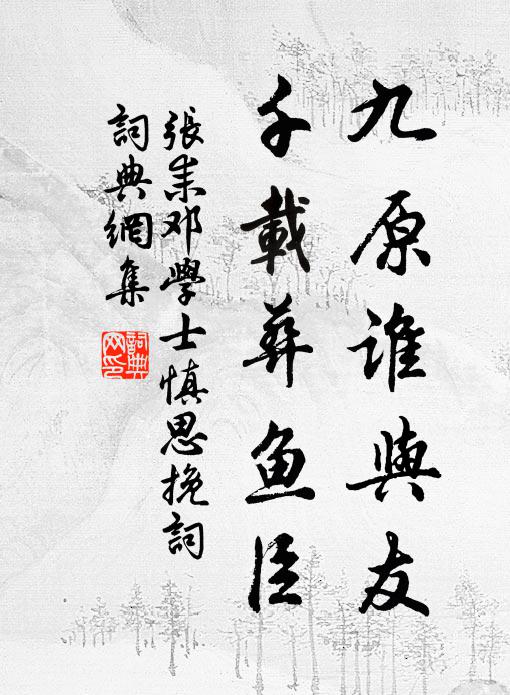 九原谁與友
千載葬鱼臣
張耒邓學士慎思挽詞
詞典網集
詞典網印